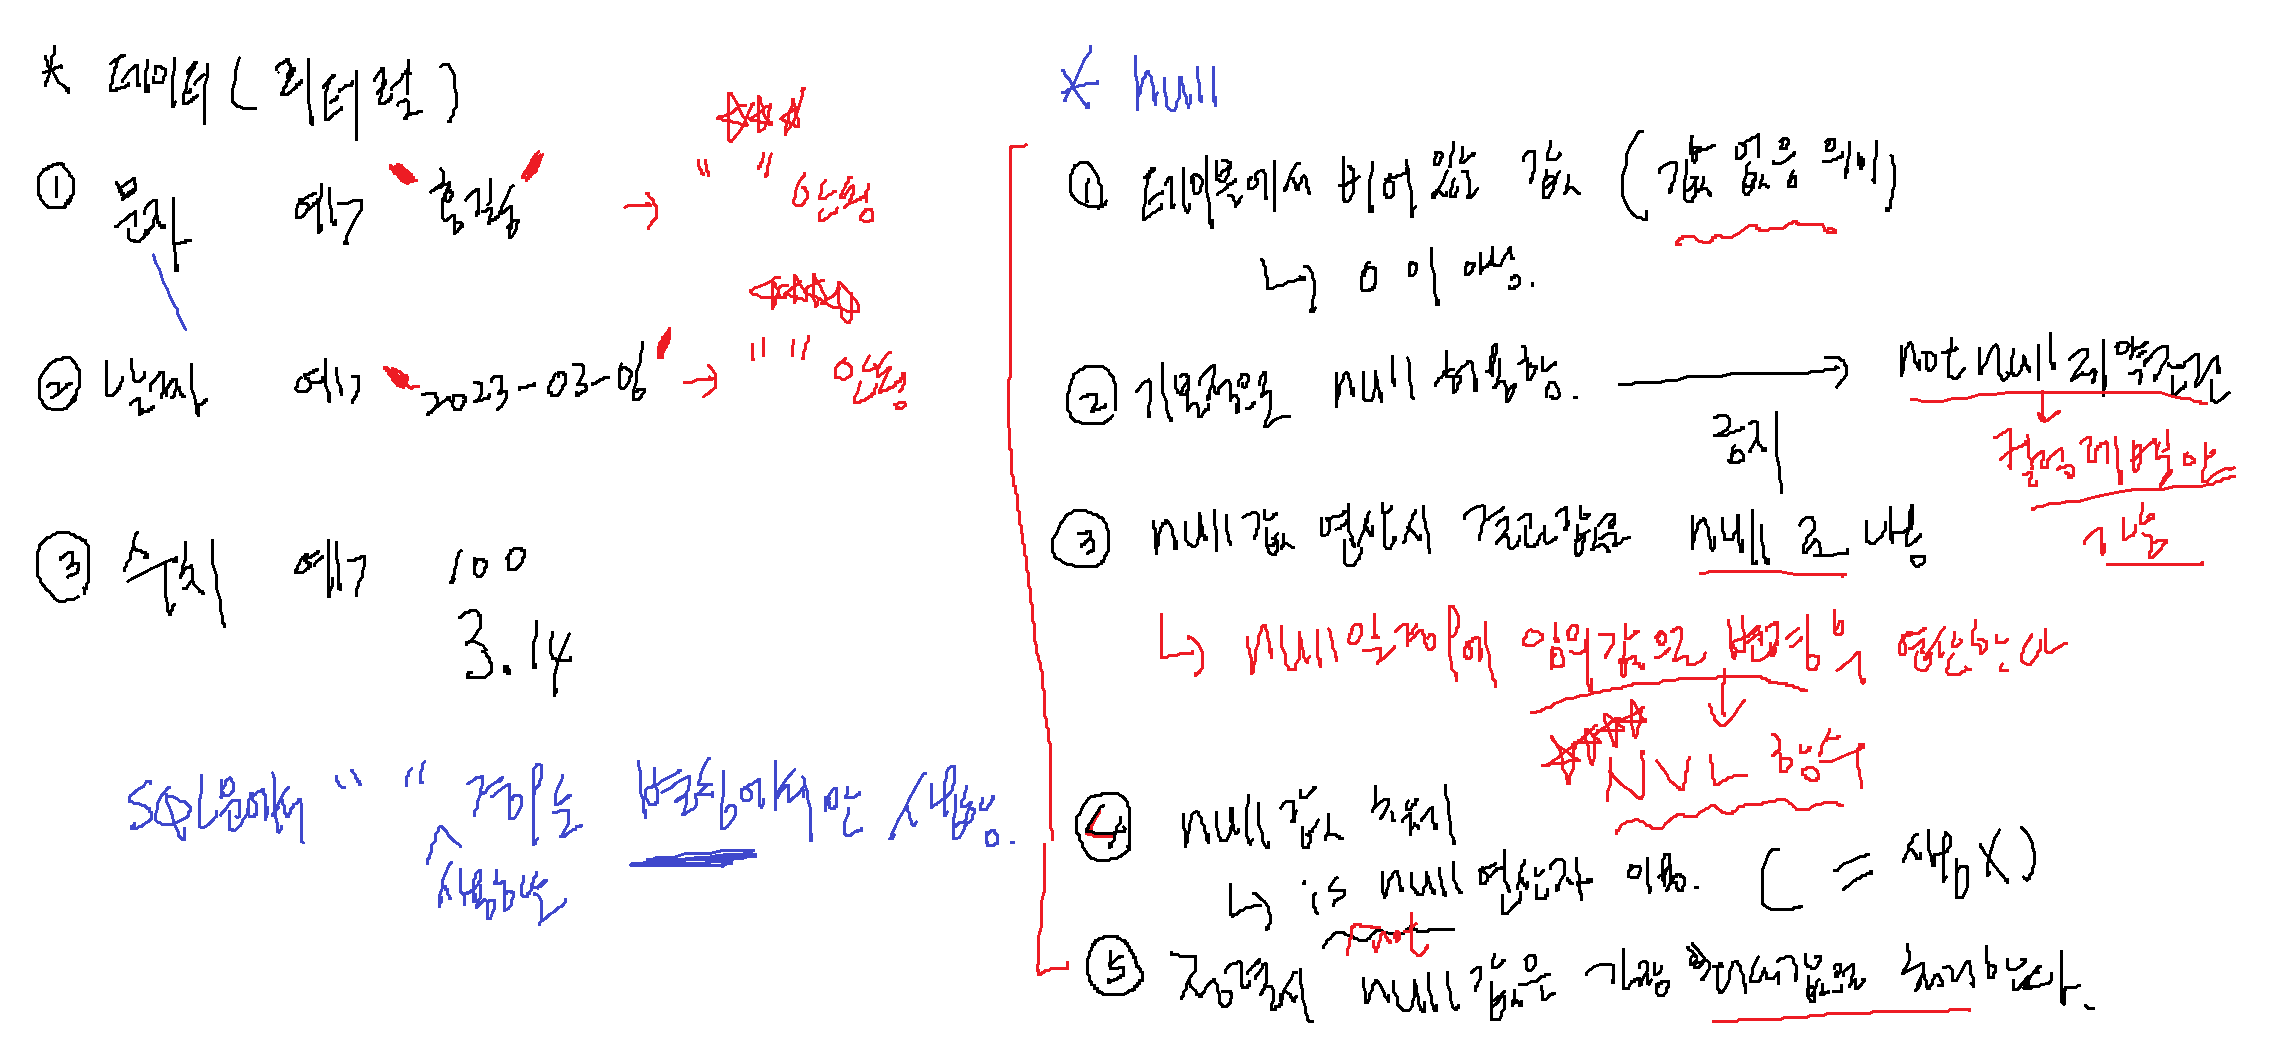 * 데이터 ( 리터럴 )
① 문자 예> ' 홍길동 ' → " " 안됨
② 날짜 예> ' 2023-03-06 ' → " " 안됨
③ 수치 예> 100
3.14
SQL문에서 " " 경우는 별칭에서만 사용.
사용하는
* null
① 테이블에서 비어 있는 값 ( 값 없음 의미 )
↳ 0 이 아님.
② 기본적으로 null 허용함. → not null 제약조건
금지
↓
컬럼레벨만
가능
③ null값 연산시 결과값은 null 로 나옴
↳ null인 경우에 임의값으로 변경후 연산한다
↓
NVL 함수
④ null 값 처리
↳ is null 연산자 이용. ( = 사용 X )
not
⑤ 정렬시 null 값은 가장 값으로 처리한다.